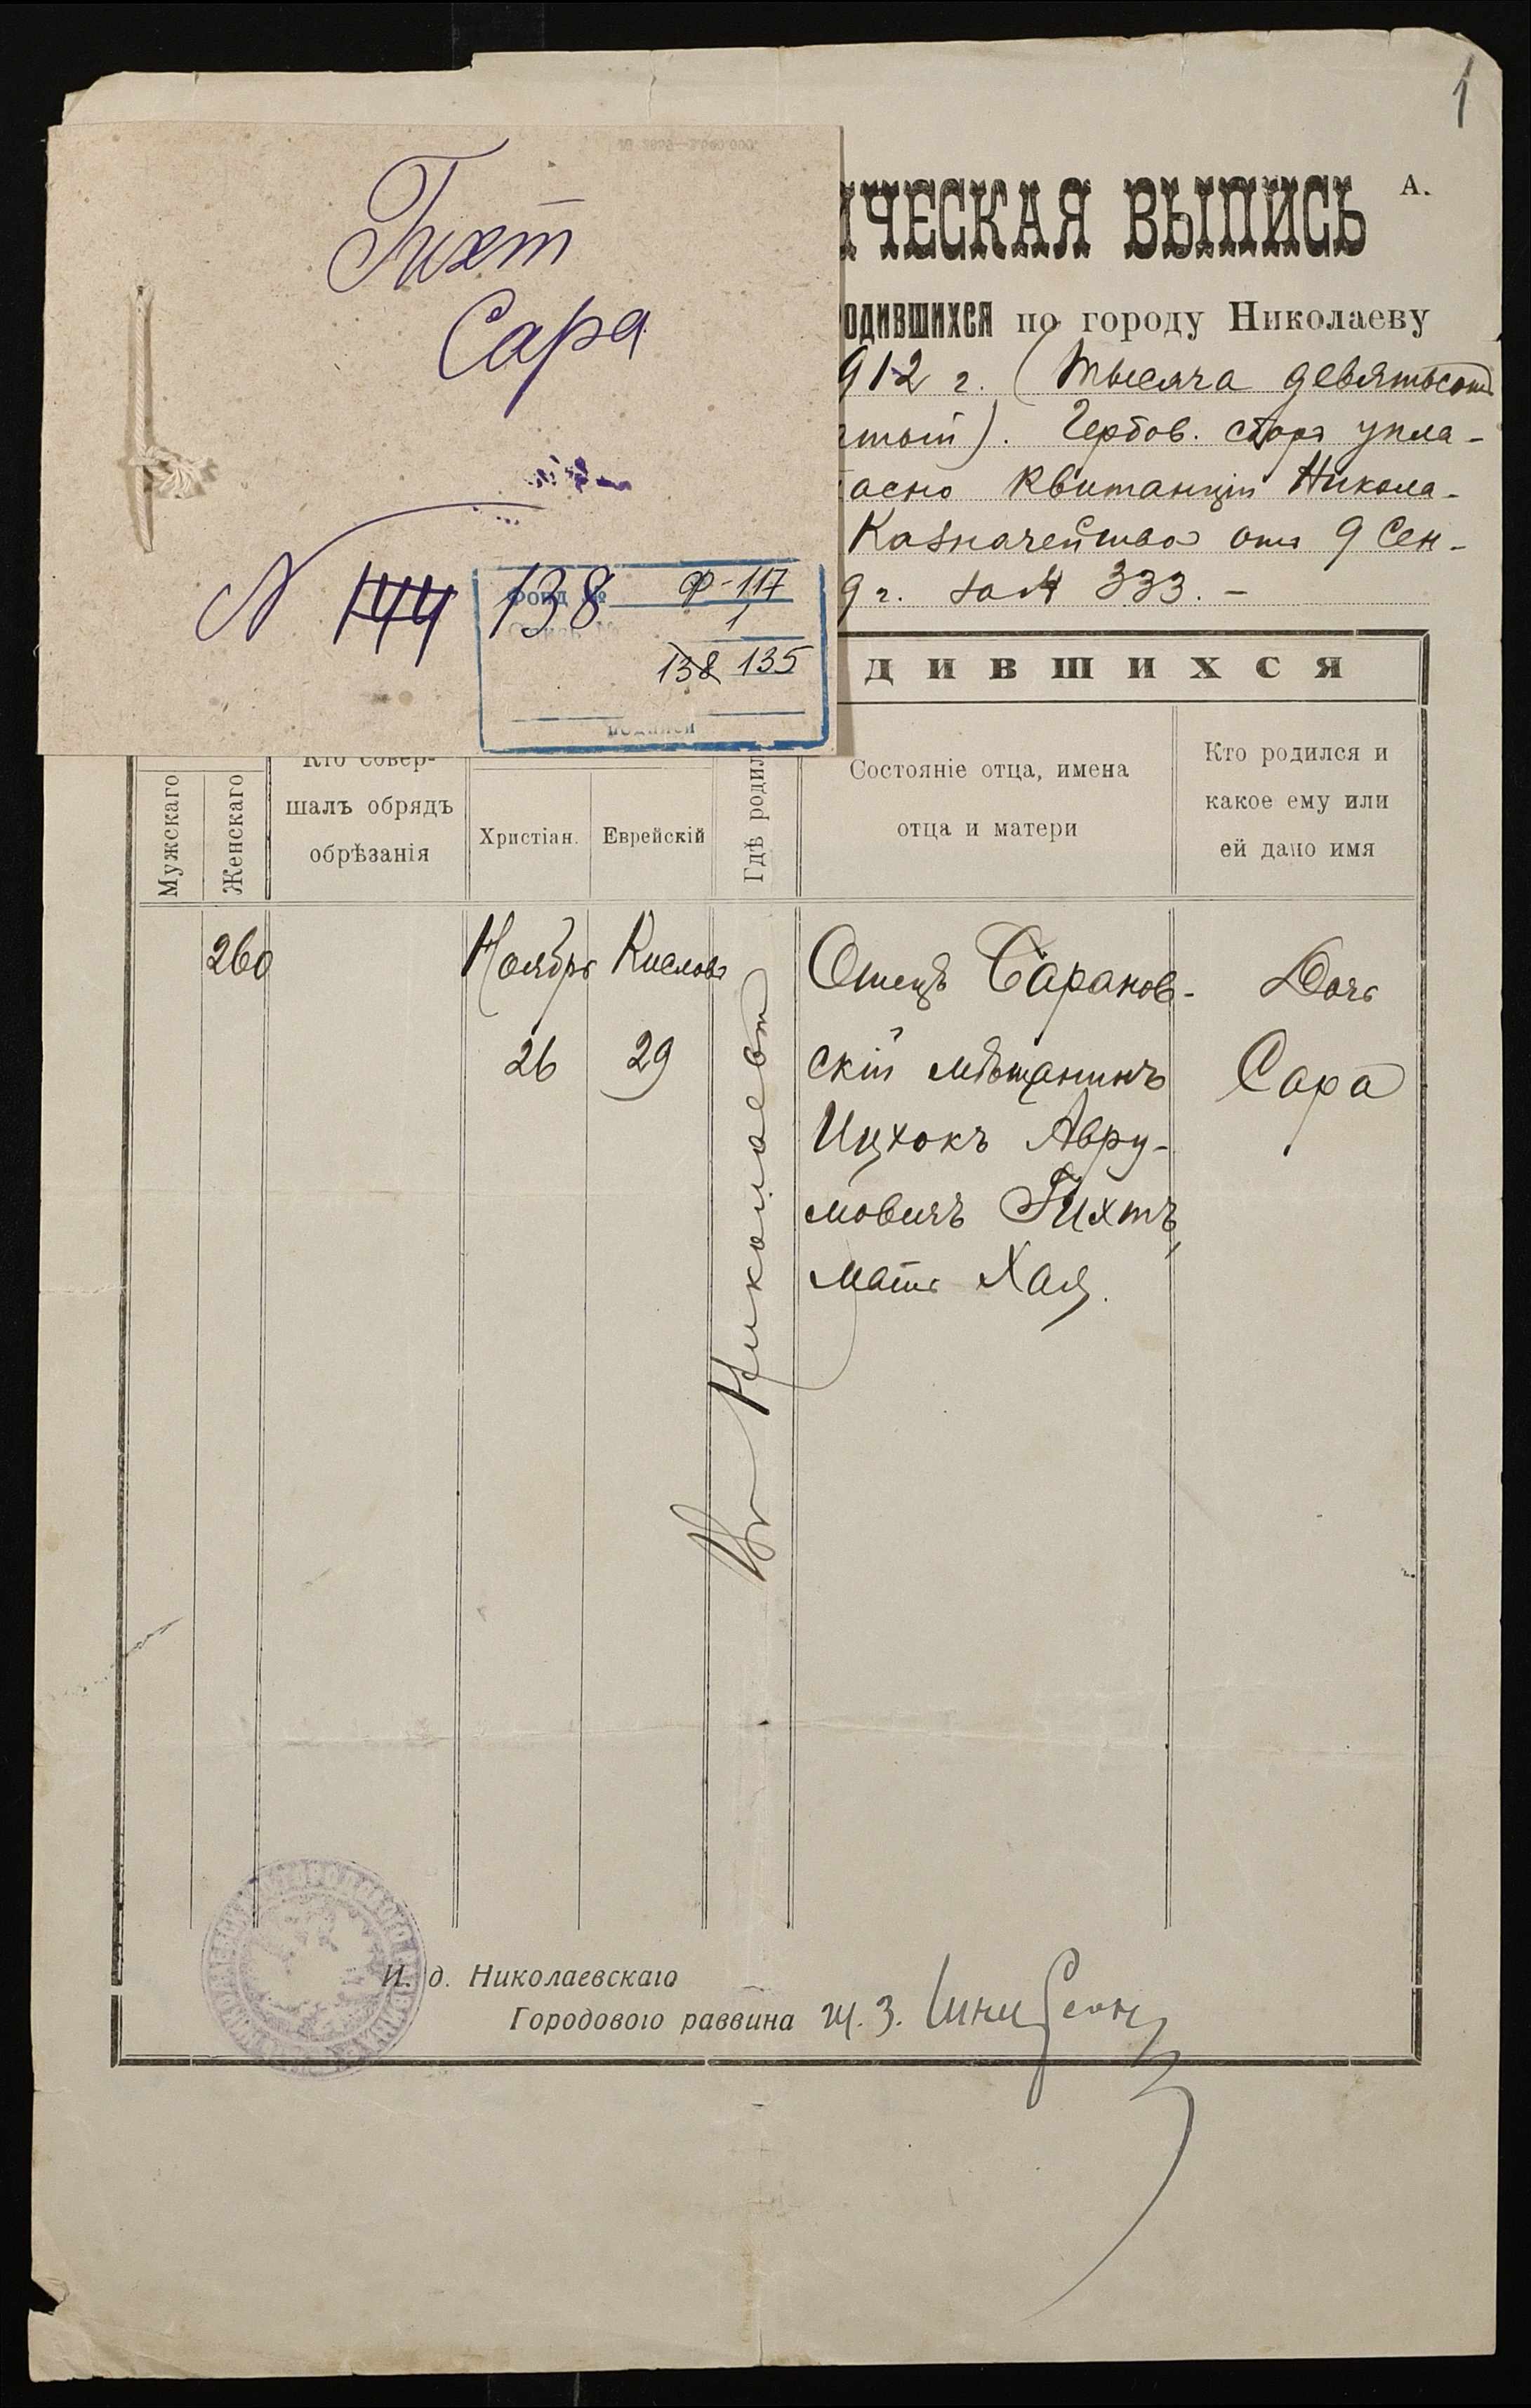 1
Гихт
Сара
N 144 138
Фонд № Ф-117
1
138 135
ИЧЕСКАЯ ВЫПИСЬ
А.
ОДИВШИХСЯ по городу Николаеву
912 г. (тысяча девятьсотъ
тый). Гербов. сборъ упла-
асно квитанціи Никола-
Казначейства отъ 9 Сен-
9 г. за № 333. –
ДИВШИХСЯ
Мужскаго
Женскаго
Кто совер-
шалъ обрядъ
обрѣзанія
Христіан.
Еврейскій
Гдѣ родил
Состояніе отца, имена
отца и матери
Кто родился и
какое ему или
ей дано имя
260
Ноября
26
Кислова
29
Въ Николаевѣ
Отецъ Тараков-
скій мѣщанинъ
Ицхокъ Авру-
мовичъ Гихтъ,
мать Хая.
Дочь
Сара
И. д. Николаевскаго
Городового раввина